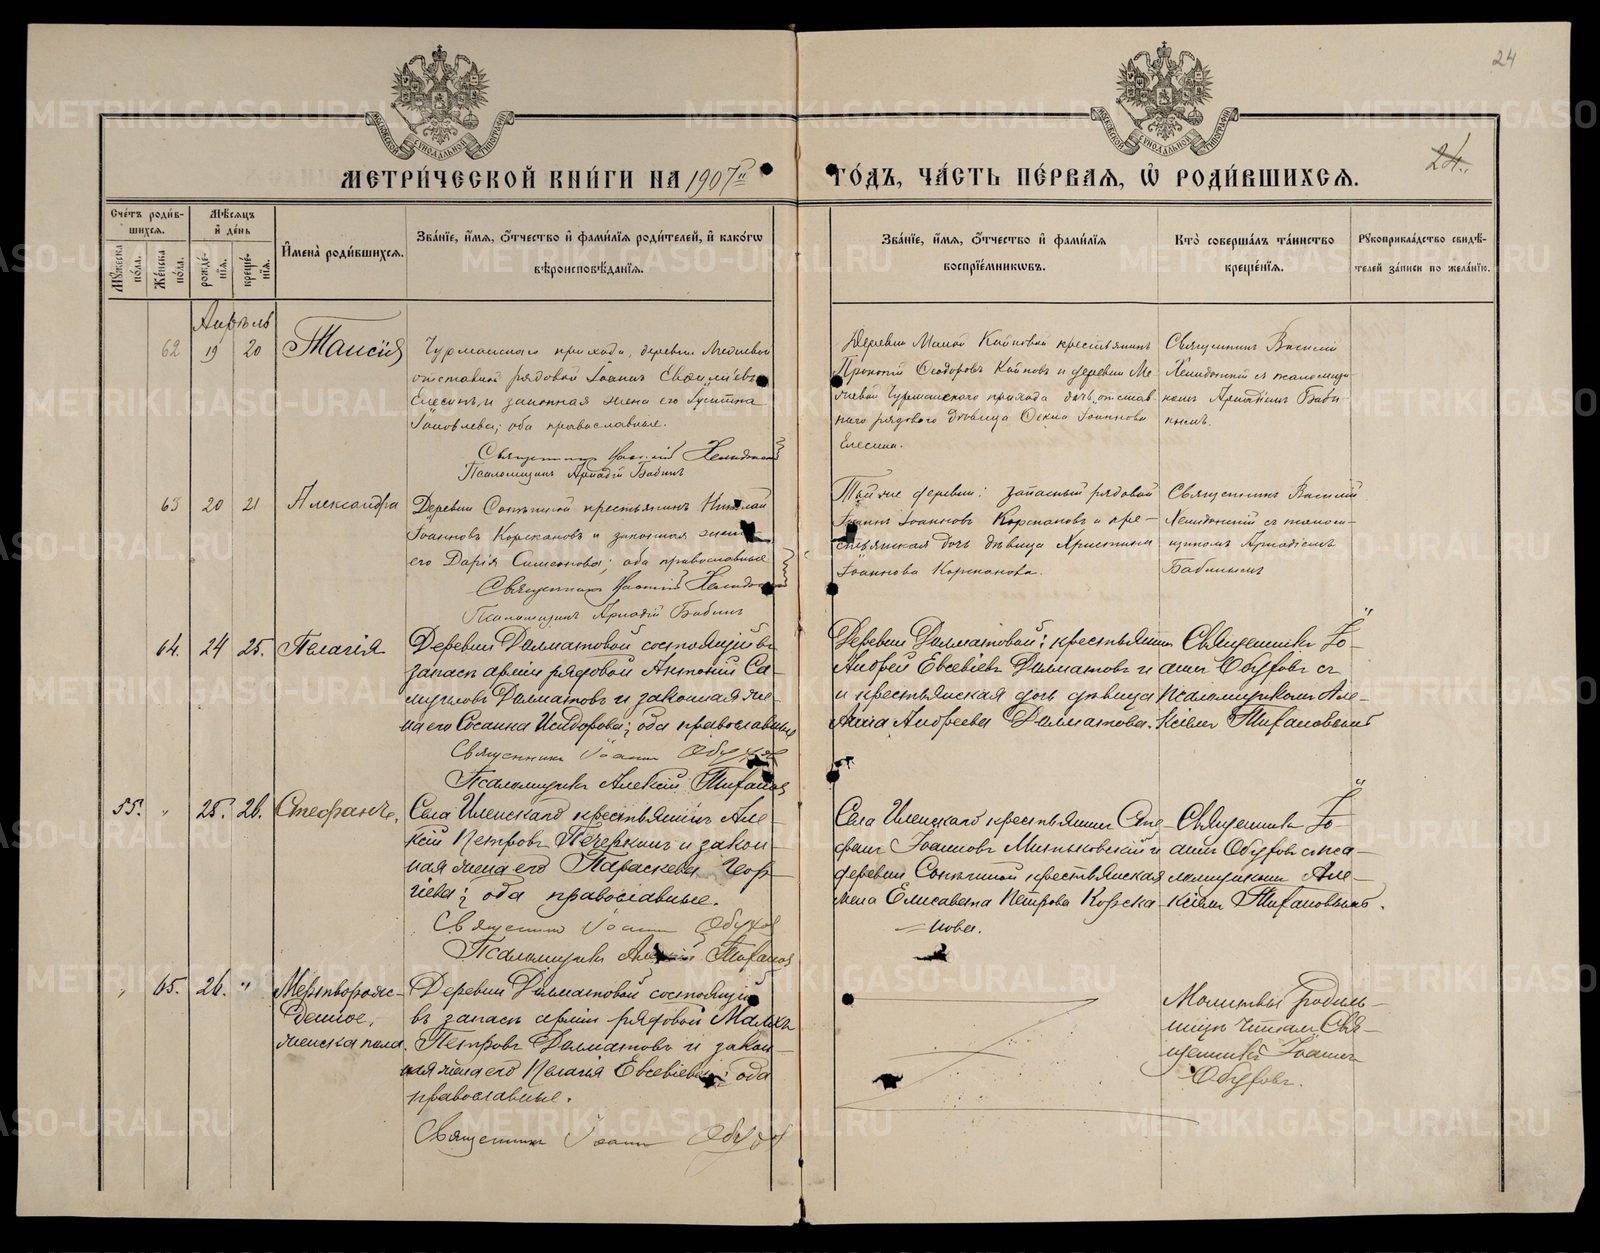 24
24.
МЕТРИ́ЧЕСКОЙ КНИ́ГИ НА 1907й
ГО́ДЪ, ЧА́СТЬ ПЕ́РВАЯ, Ѡ РОДИ́ВШИХСЯ.
Сче́тъ роди́в-
шихся.
Мꙋ́жеска по́ла.
Же́нска по́ла.
Мѣ́сяцъ и҆ де́нь
рожде́-нїя.
креще́-нїя.
И҆мена̀ роди́вшихся.
Зва́нїе, и҆́мя, ѻ҆́тчество и҆ фами́лїя роди́телей, и҆ како́гѡ
вѣроисповѣ́данїя.
Зва́нїе, и҆́мя, ѻ҆́тчество и҆ фами́лїя
воспрїе́мникѡвъ.
Кто̀ соверша́лъ та́инство
креще́нїя.
Рꙋкоприкла́дство свидѣ́-
телей за́писи по жела́нїю.
Апрѣль
62 19 20 Таисія
Чурманскаго прихода, деревни
отставной рядовой Іоаннъ
и законная жена его Іустина
Іаковлева; оба православные.
Священникъ
Псаломщикъ Аркадій Бабинъ
Деревни Малой Кайновой крестьянинъ
Прокопій Ѳеодоровъ Кайновъ и деревни Ме-
Чурманскаго прихода дочь отстав-
наго рядового дѣвица Іоаннова
Священникъ Василій
съ псаломщи-
комъ Аркадіемъ Баби-
нымъ.
63 20 21 Александра
Деревни крестьянинъ Николай
Іоанновъ Корскановъ и законная жена
его Дарія Симеонова; оба православные
Священникъ
Псаломщикъ Аркадій Бабинъ
Той же деревни: запасный рядовой
Іоаннъ Іоанновъ Корскановъ и кре-
стьянская дочь дѣвица Христина
Іоаннова Корсканова.
Священникъ Василій
съ псалом-
щикомъ Аркадіемъ
Бабинымъ
64. 24 25. Пелагія
Деревни Далматовой состоящій въ
запасѣ арміи рядовой Антоній Са-
муиловъ Далматовъ и законная же-
на его Сосанна Исидорова; оба православные
Священникъ Іоаннъ Обуховъ
Псаломщикъ Алексій Тихановъ
Деревни Далматовой: крестьянинъ
Андрей Евсевіевъ Далматовъ и
и крестьянская дочь дѣвица
Анна Андреева Далматова.
Священникъ Іо-
аннъ Обуховъ съ
псаломщикомъ Але-
ксіемъ Тихановымъ
55. " 25. 26. Стефанъ.
Села Иленскаго крестьянинъ Але-
ксій Петровъ Печеркинъ и закон-
ная жена его Параскева Геор-
гіева; оба православные.
Священникъ Іоаннъ Обуховъ
Псаломщикъ Алексій Тихановъ
Села Иленскаго крестьянинъ Сте-
фанъ Іоанновъ Миньковскій и
деревни крестьянская
жена Елисавета Петрова Корска-
нова.
Священникъ Іо-
аннъ Обуховъ съ пса-
ломщикомъ Але-
ксіемъ Тихановымъ.
" 65. 26. " Мертворож-
денное,
женска пола.
Деревни Далматовой состоящій
въ запасѣ арміи рядовой
Петровъ Далматовъ и закон-
ная жена его Пелагія Евсевіева; оба
православные.
Священникъ Іоаннъ Обуховъ
Молитвы родиль-
ницѣ читалъ Свя-
щенникъ Іоаннъ
Обуховъ.
METRIKI.GASO-URAL.RU